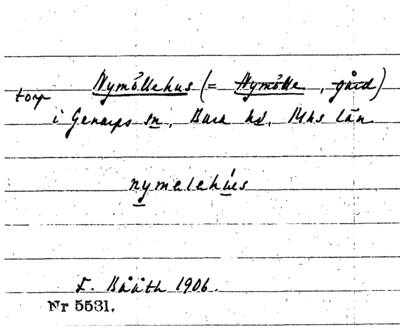 torp Nymöllehus (= Nymölle, gård)
i Genarps sn, Bara hd, Mhs län
nymelehus
F. Bååth 1906.
Nr 5531.